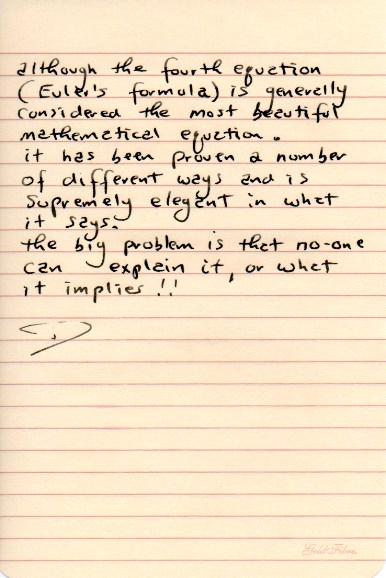 although the fourth equation
(Euler's formula) is generally
considered the most beautiful
mathematical equation.
it has been proven a number
of different ways and is
supremely elegant in what
it says.
the big problem is that no-one
can explain it, or what
it implies!!
Gold Fibre